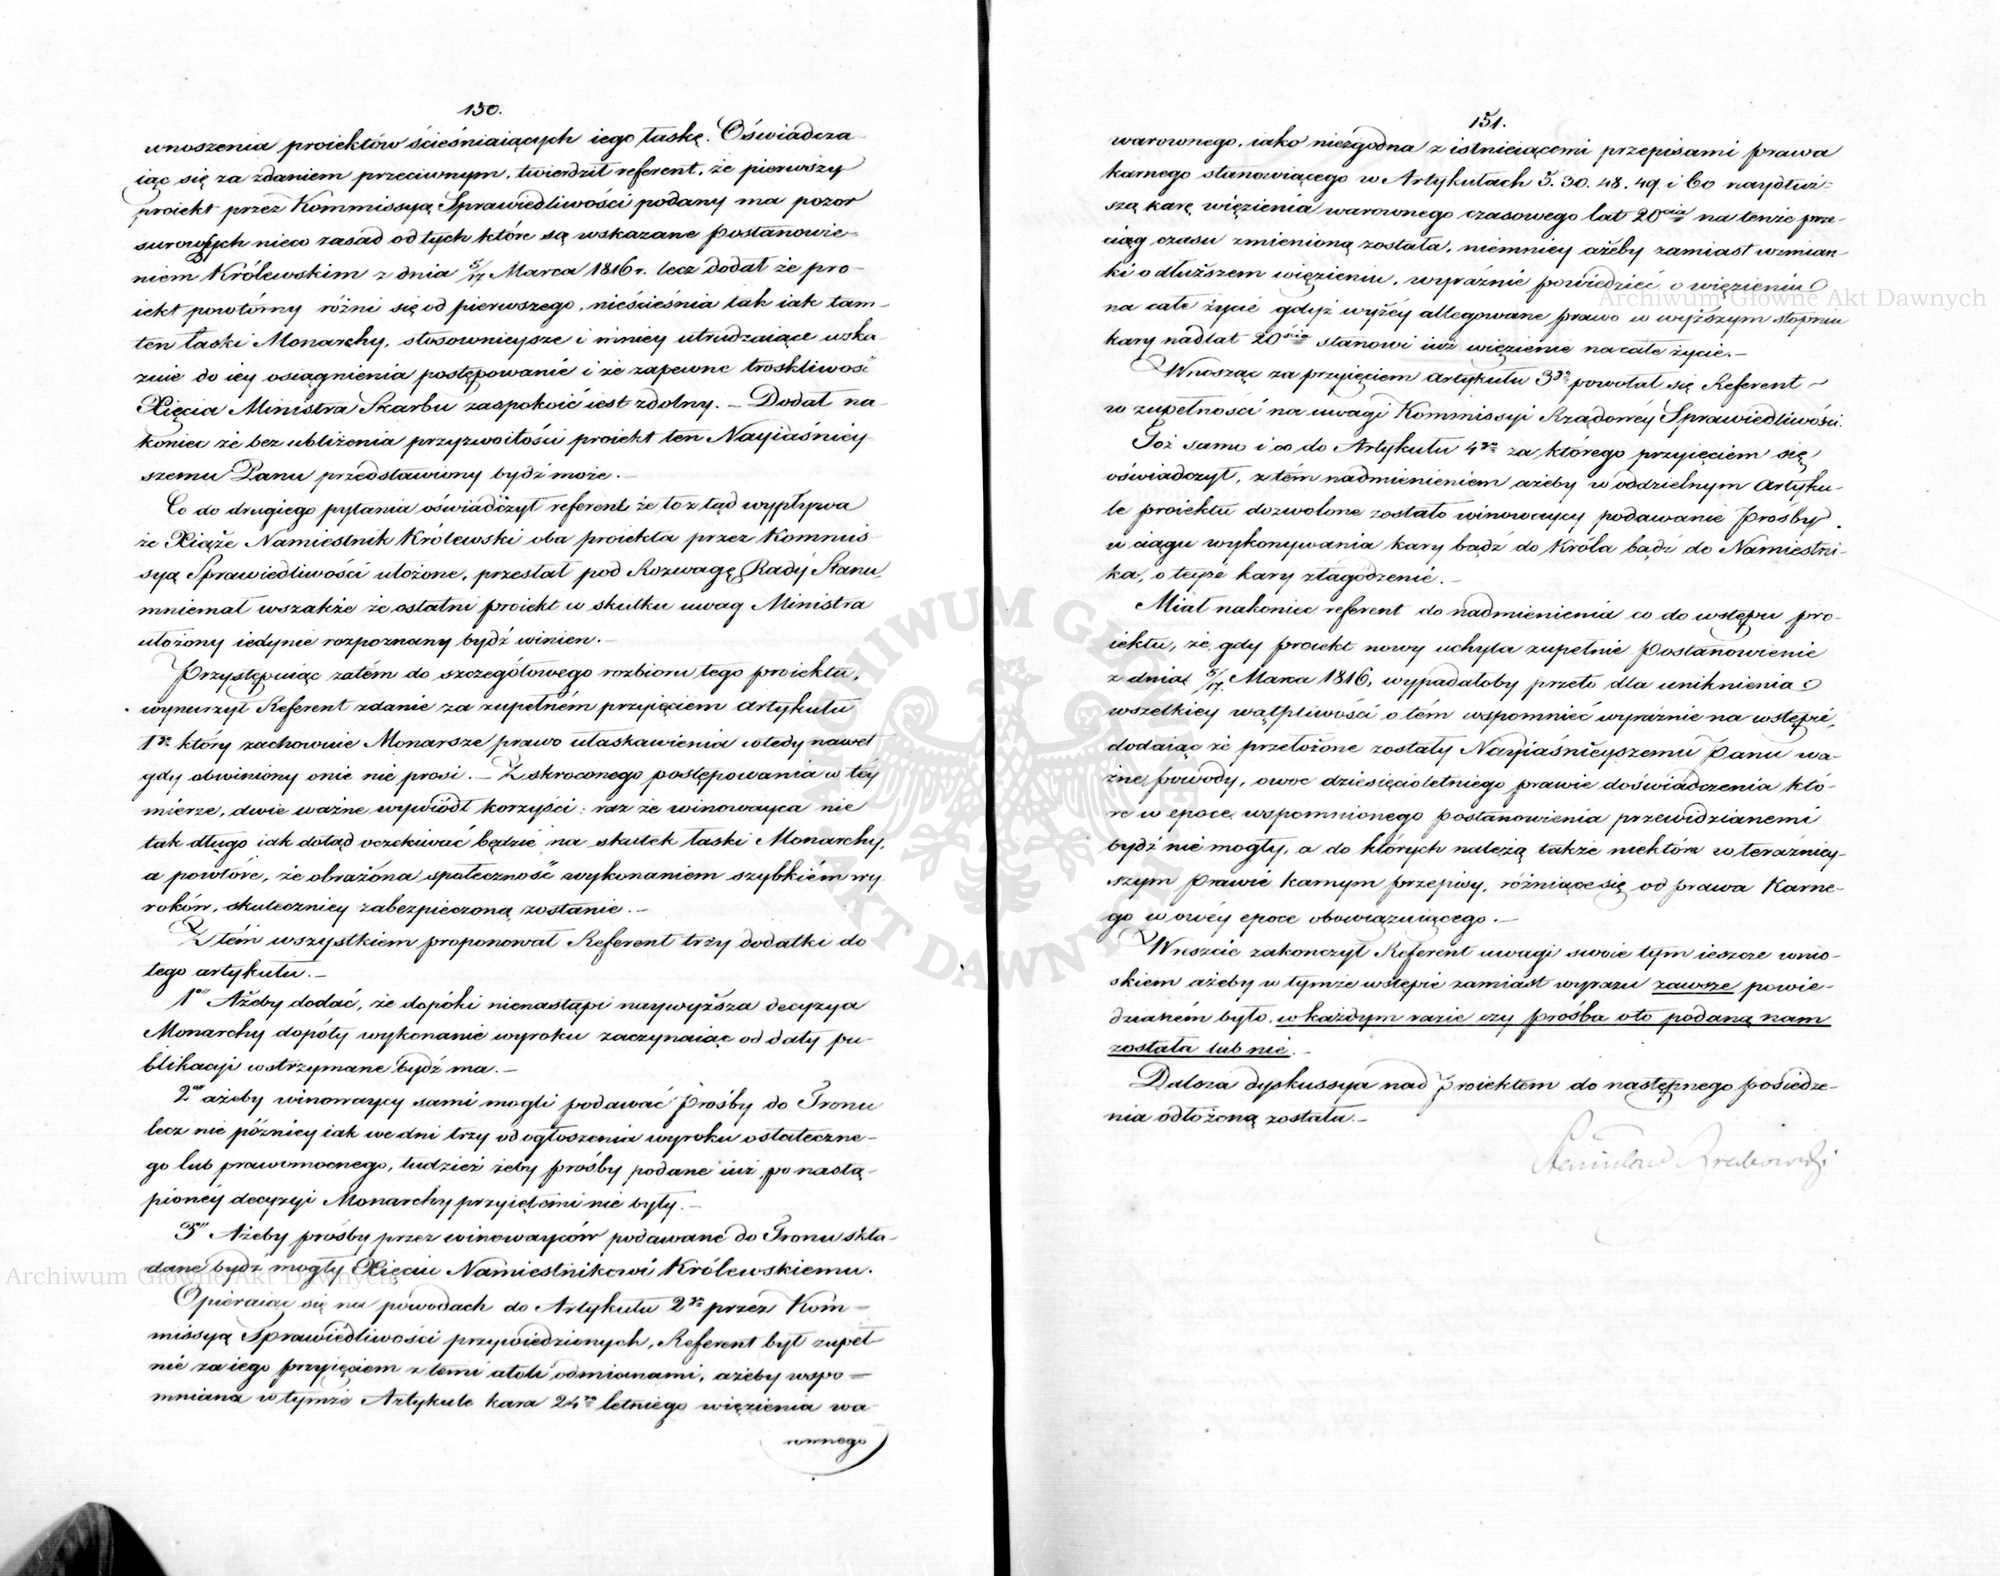 150.
wnoszenia proiektów ścieśniaiących iego łaskę. Oświadcza
iąc się za zdaniem przeciwnym, twierdził referent, że pierwszy
proiekt przez Kommissyą Sprawiedliwości podany ma pozor
surowszych nieco zasad od tych które są wskazane Postanowie-
niem Królewskim z dnia 5/17 Marca 1816 r. lecz dodał że pro-
iekt powtórny różni się od pierwszego, nieścieśnia tak iak tam-
ten łaski Monarchy, stosownieysze i mniey utrudzaiące wska-
zuie do iey osiągnienia postępowanie i że zapewne troskliwość
Xięcia Ministra Skarbu zaspokoić iest zdolny. – Dodał na-
koniec że bez ubliżenia przyzwoitości proiekt ten Nayiaśniey
szemu Panu przedstawiony bydź może. –
Co do drugiego pytania oświadczył referent że to z tąd wypływa
że Xiąże Namiestnik Królewski oba proiekta przez Kommis-
syą Sprawiedliwości ułożone, przesłał pod Rozwagę Rady Stanu,
mniemał wszakże że ostatni proiekt w skutku uwag Ministra
ułożony iedynie rozpoznany bydź winien. –
Przystępuiąc zatém do szczegółowego rozbioru tego proiektu,
wynurzył Referent zdanie za zupełném przyięciem Artykułu
1go który zachowuie Monarsze prawo ułaskawienia wtedy nawet
gdy obwiniony onie nie prosi. – Z skroconego postępowania w tey
mierze, dwie ważne wywiódł korzyści: raz że winowayca nie
tak długo iak dotąd oczekiwać będzie na skutek łaski Monarchy,
a powtóre, że obrażona społeczność wykonaniem szybkiém wy
roków, skuteczniey zabezpieczoną zostanie. –
Z tém wszystkiem proponował Referent trzy dodatki do
tego artykułu. –
1o Ażeby dodać, że dopóki nienastąpi naywyższa decyzya
Monarchy dopóty wykonanie wyroku zaczynaiąc od daty pu-
blikacji wstrzymane bydź ma. –
2o ażeby winowaycy sami mogli podawać Prośby do Tronu
lecz nie późniey iak we dni trzy od ogłoszenia wyroku ostateczne-
go lub prawomocnego, tudzież żeby prośby podane iuż po nastą-
pioney decyzyi Monarchy przyiętemi nie były. –
3o Ażeby prośby przez winowayców podawane do Tronu skła-
dane bydź mogły Xięciu Namiestnikowi Królewskiemu.
Opieraiąc się na powodach do Artykułu 2go przez Kom-
missyą Sprawiedliwości przywiedzionych, Referent był zupeł
nie za iego przyięciem z temi atoli odmianami, ażeby wspo-
mniana w tymże Artykule kara 24ro letniego więzienia wa-
rownego
151.
warownego, iako niezgodna z istnieiącemi przepisami prawa
karnego stanowiącego w Artykułach 5. 30. 48. 49. i 60 naydłuż-
szą karę więzienia warownego czasowego lat 20cia na tenże prze-
ciąg czasu zmienioną została, niemniey ażeby zamiast wzmian-
ki o dłuższem więzieniu, wyraźnie powiedzieć o więzieniu
na całe życie gdyż wyżéy allegowane prawo w wyższym stopniu
kary nad lat 20cia stanowi iuż więzienie na całe życie. –
Wnosząc za przyięciem Artykułu 3go powołał się Referent
w zupełności na uwagi Kommissyi Rządowéy Sprawiedliwości.
Toż samo i co do Artykułu 4go za którego przyięciem się
oświadczył, z tém nadmienieniem ażeby w oddzielnym Artyku-
le proiektu dozwolone zostało winowaycy podawanie Prośby
w ciągu wykonywania kary bądź do Króla bądź do Namiestni-
ka, o teyże kary złagodzenie. –
Miał nakoniec referent do nadmienienia co do wstępu pro-
iektu, że, gdy proiekt nowy uchyla zupełnie Postanowienie
z dnia 5/17 Marca 1816, wypadałoby przeto dla uniknienia
wszelkiey wątpliwości o tém wspomnieć wyraźnie na wstępie,
dodaiąc że przełożone zostały Nayiaśnieyszemu Panu wa-
żne powody, owoc dziesięcioletniego prawie doświadczenia któ-
re w epoce wspomnionego postanowienia przewidzianemi
bydź nie mogły, a do których należą także niektóre w teraźniey-
szym Prawie Karnym przepisy, różniące się od prawa Karne-
go w owéy epoce obowiązuiącego. –
Wreszcie zakonczył Referent uwagi swoie tym ieszcze wnio-
skiem ażeby w tymże wstępie zamiast wyrazu zawsze powie-
dzianém było, w każdym razie czy prośba oto podaną nam
została lub nie. –
Dalsza dyskussya nad proiektem do następnego posiedze-
nia odłożoną została. –
Stanisław Grabowski
Archiwum Główne Akt Dawnych
Archiwum Główne Akt Dawnych
ARCHIWUM GŁÓWNE AKT DAWNYCH